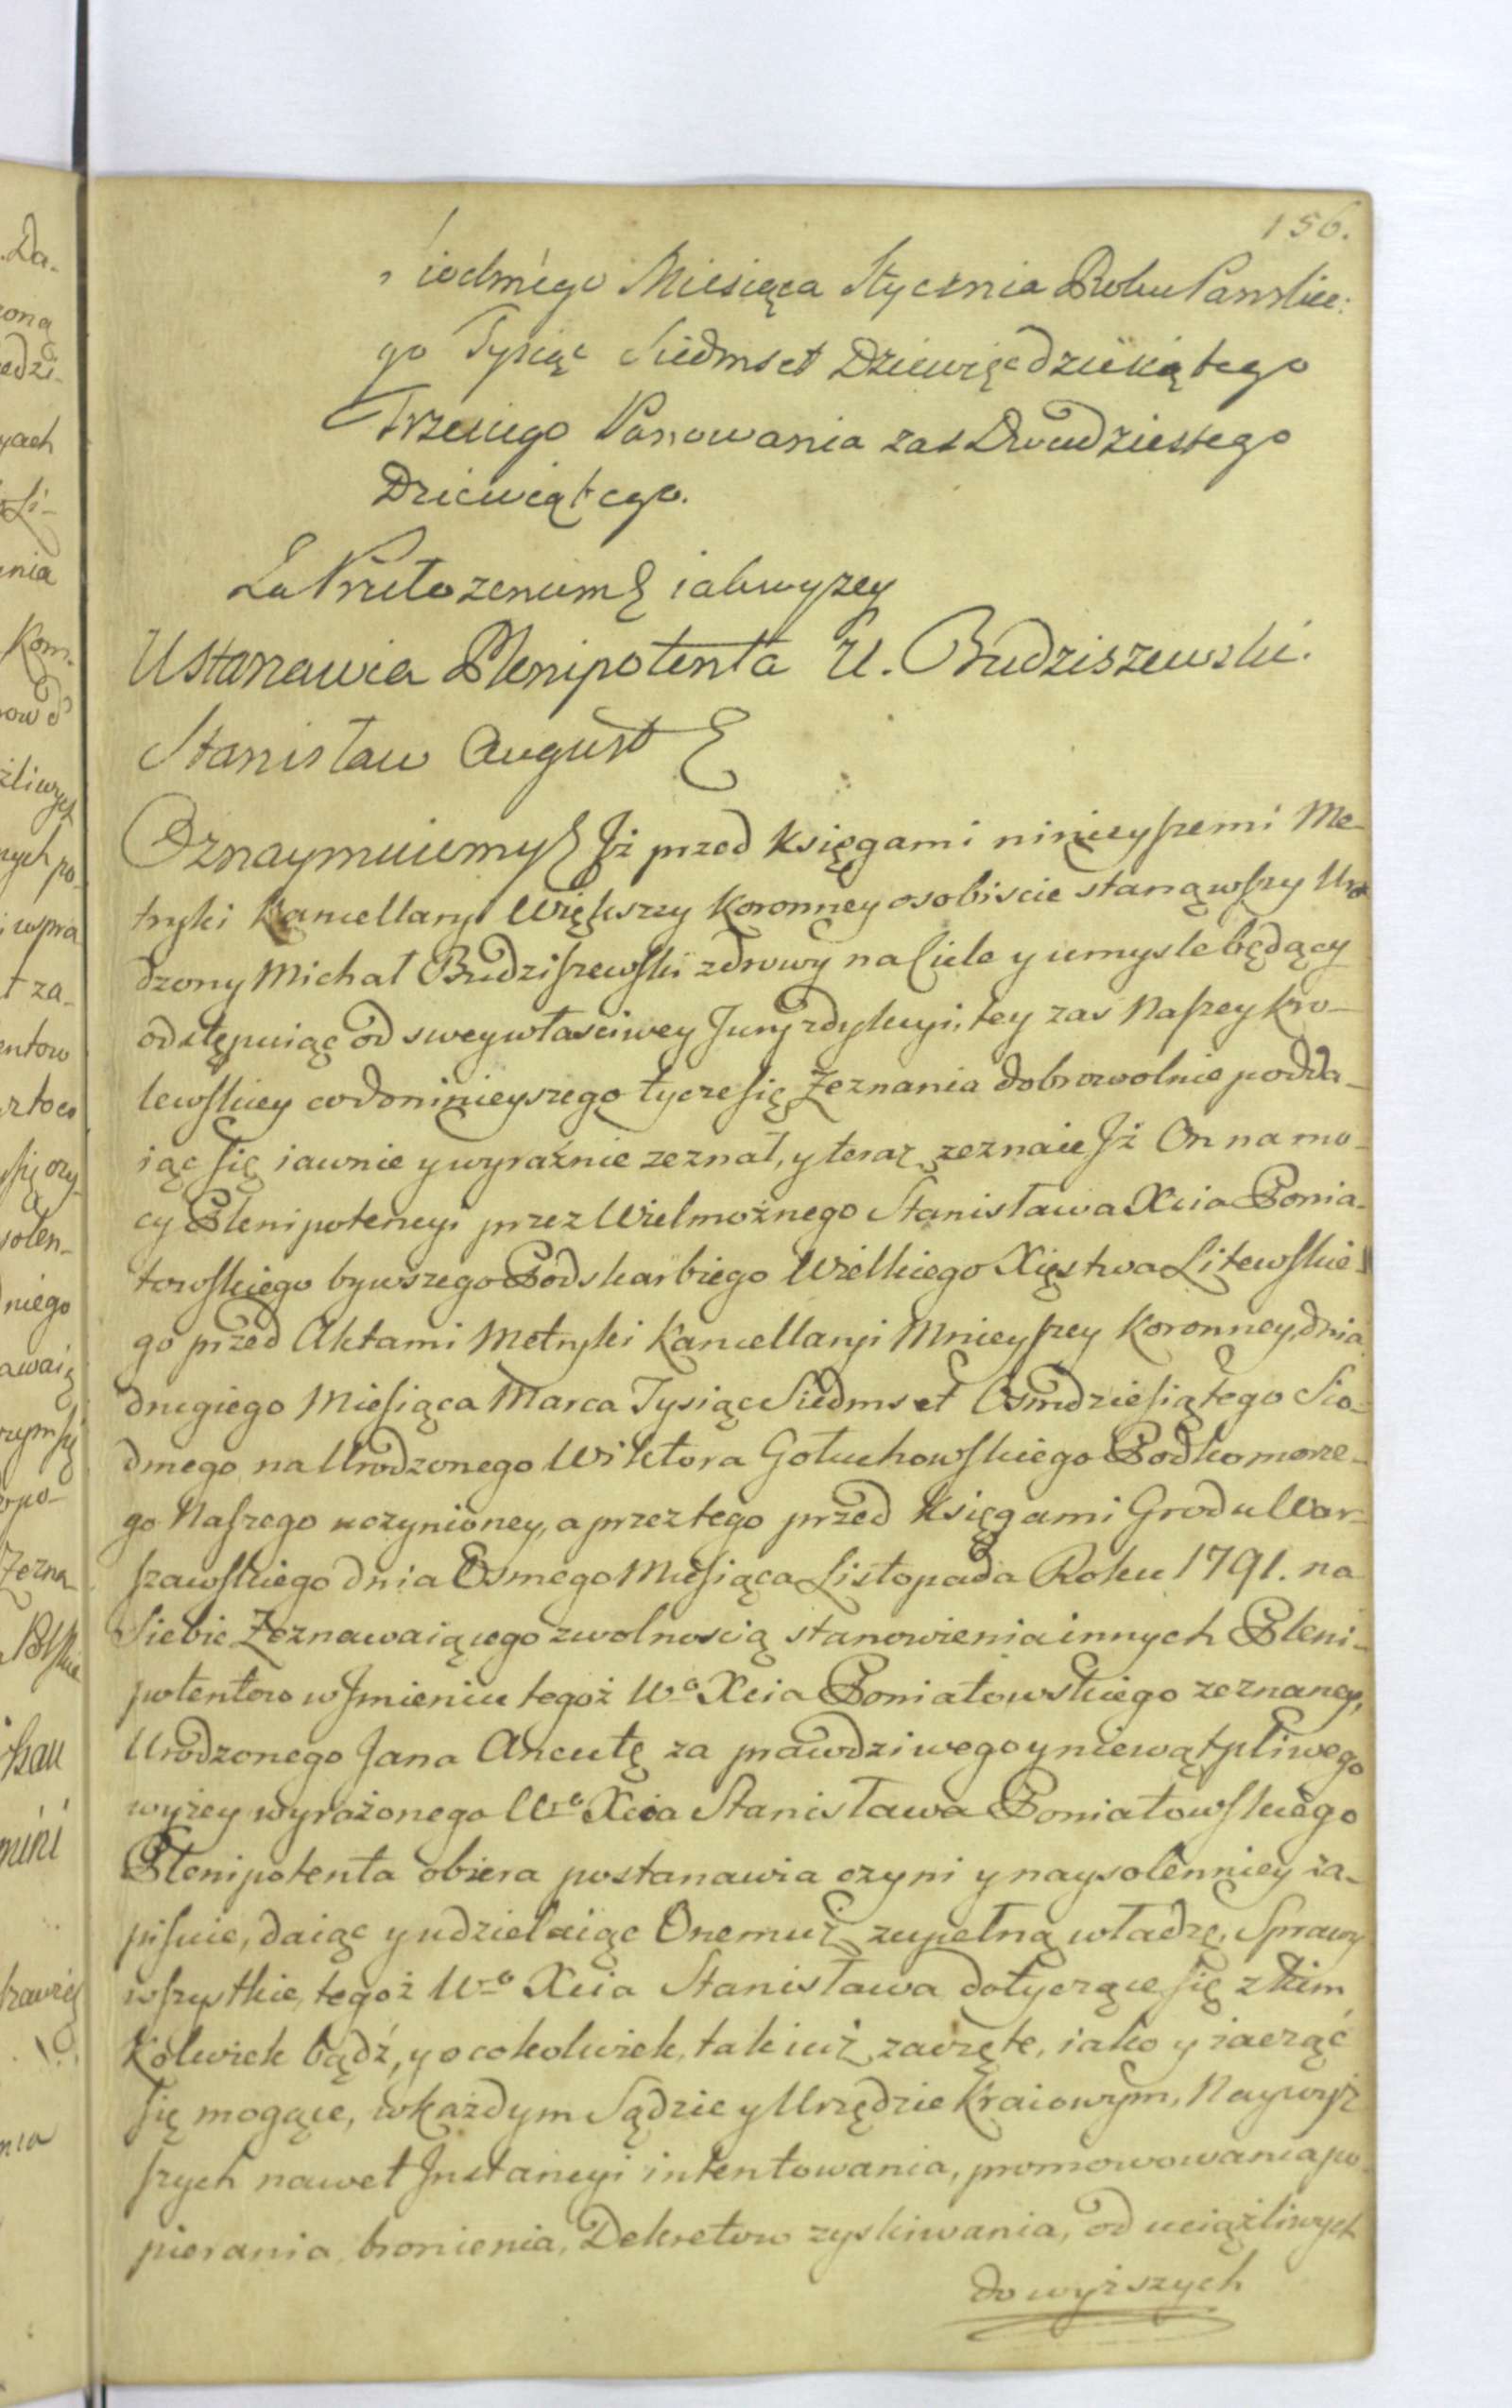 156.
siodmego Miesiąca Stycznia Roku Panskie:
go Tysiąc Siedmset Dziewięcdziesiątego
Trzeciego Panowania zas Dwudziestego
Dziewiątego.
Za Przełozeniem & iakwyzey
Ustanawia Plenipotenta U. Budziszewski.
Stanisław August &
Oznaymuiemy & Jż przed Księgami ninieyszemi Me-
tryki Kancellaryi Większey Koronney osobiscie stanąwszy Uro
dzony Michał Budziszewski zdrowy na Ciele y umysle będący
odstępuiąc od swey własciwey Juryzdykcyi, tey zas Naszey Kro-
lewskiey co do ninieyszego tycze się Zeznania dobrowolnie podda-
iąc się iawnie y wyraźnie zeznał, y teraz zeznaie Jż On na mo-
cy Plenipotencyi przez Wielmożnego Stanisława Xcia Ponia-
towskiego bywszego Podskarbiego Wielkiego Xięstwa Litewskie-
go przed Aktami Metryki Kancellaryi Mnieyszey Koronney, dnia
drugiego Miesiąca Marca Tysiąc Siedmset Osmdziesiątego Sio-
dmego na Urodzonego Wiktora Gołuchowskiego Podkomorze-
go Naszego uczynioney, a przez tego przed Księgami Grodu War-
szawskiego dnia Osmego Miesiąca Listopada Roku 1791. na
Siebie Zeznawaiącego z wolnoscią stanowienia innych Pleni-
potentow w Jmieniu tegoż Wo Xcia Poniatowskiego zeznaney,
Urodzonego Jana Ancutę za prawdziwego y niewątpliwego
wyżey wyrażonego Wo Xcia Stanisława Poniatowskiego
Plenipotenta obiera postanawia czyni y naysolenniey za-
pisuie, daiąc y udzielaiąc Onemuż zupełną władzę, Sprawy
wszystkie, tegoż Wo Xcia Stanisława dotyczące się z kim
Kolwiek bądź, y o cokolwiek, tak iuż zaczęte, iako y zacząć
się mogące, w każdym Sądzie y Urzędzie Kraiowym, Naywyż
szych nawet Jnstancyi intentowania, promowowania po-
pierania, bronienia, Dekretow zyskiwania, od uciążliwych
do wyższych